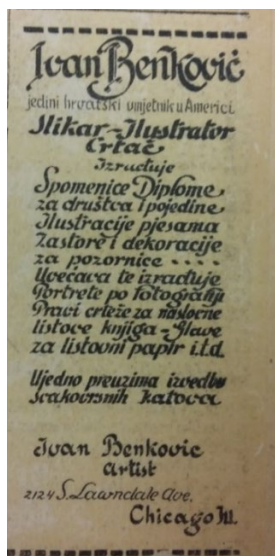 Ivan Benković
jedini hrvatski umjetnik u Americi.
Slikar-Ilustrator
Crtač
Izrađuje
Spomenice Diplome
za društva i pojedine
Ilustracije pjesama
Zastore i dekoracije
za pozornice ....
Uvećava te izrađuje
Portrete po fotografiji
Pravi crteže za naslovne
listove knjiga-Glave
za listovni papir i.t.d.
Ujedno preuzima izvedbu
svakovrsnih katova
Ivan Benkovic
artist
2124 S. Lawndale Ave,
Chicago Ill.